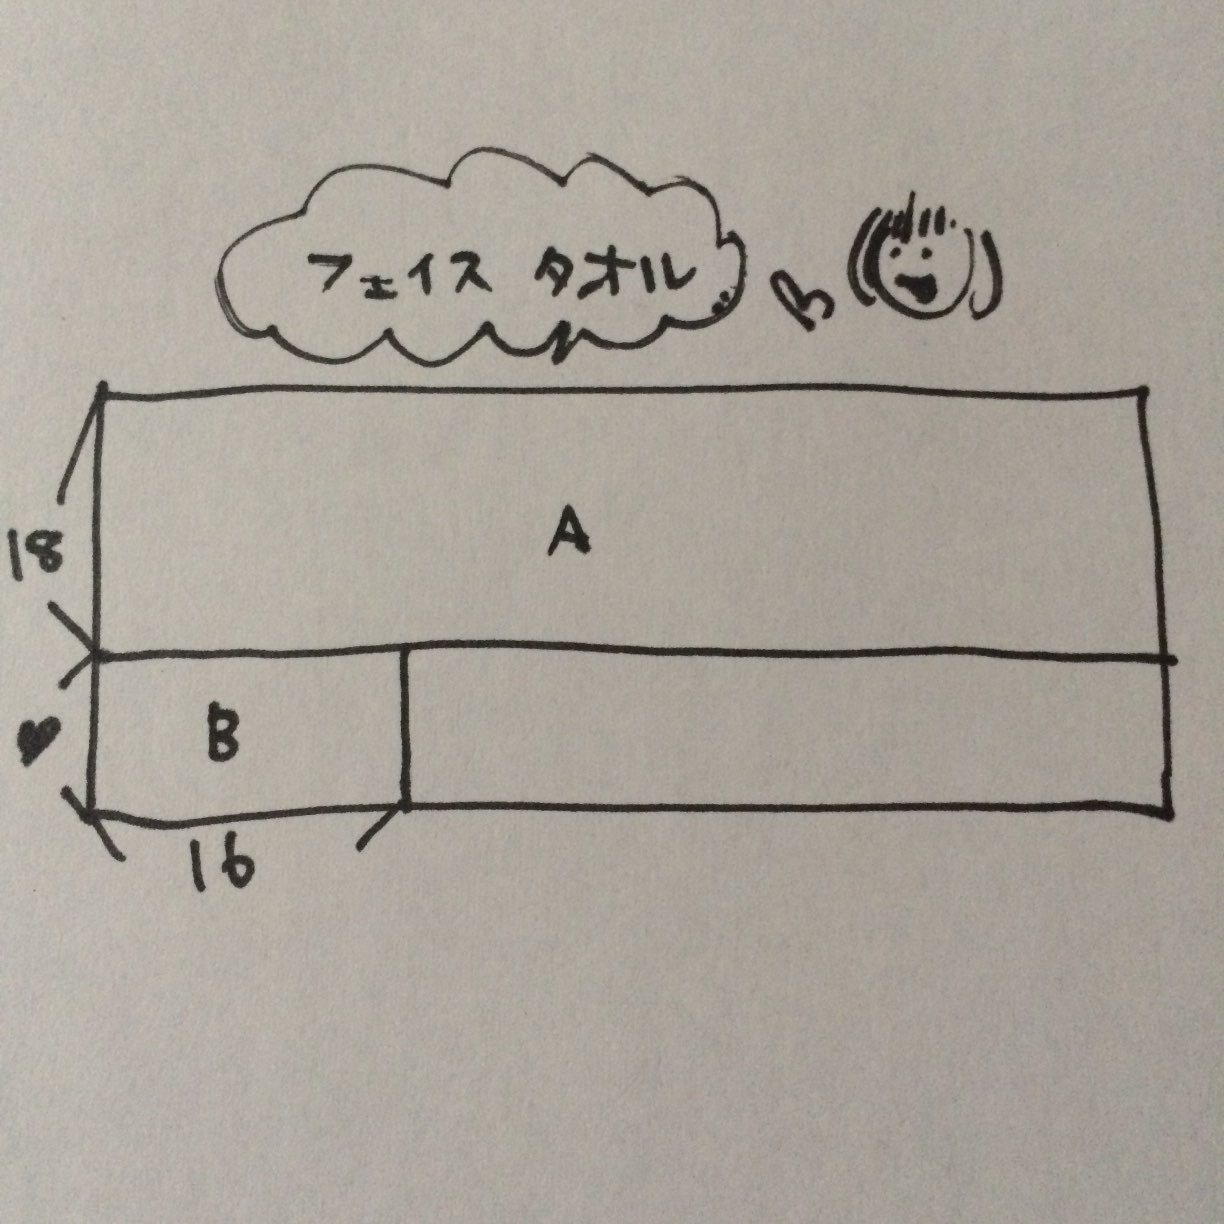 フェイス タオル
18
A
B
16